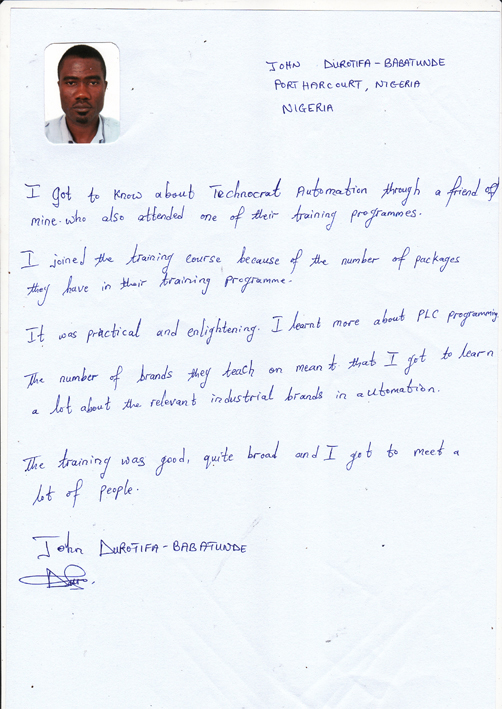 JOHN DUROTIFA-BABATUNDE
PORT HARCOURT, NIGERIA
NIGERIA
I got to know about Technocrat Automation through a friend of
mine who also attended one of their training programmes.
I joined the training course because of the number of packages
they have in their training programme.
It was practical and enlightening. I learnt more about PLC programming
The number of brands they teach on meant that I got to learn
a lot about the relevant industrial brands in automation.
The training was good, quite broad and I got to meet a
lot of people.
John DUROTIFA-BABATUNDE